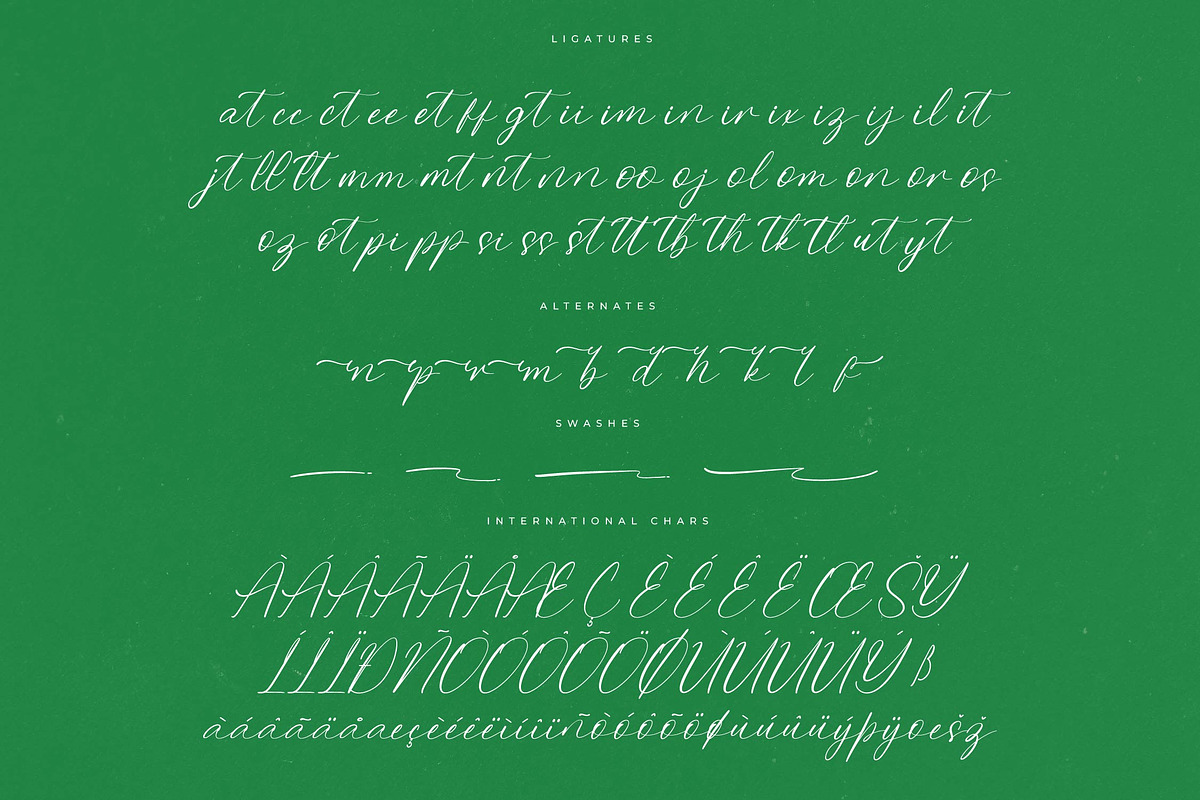 LIGATURES
at cc ct ee et ff gt ii im in ir ix iz ij il it
jt ll lt mm mt nt nn oo oj ol om on or os
oz ot pi pp si ss st tt tb th tk tl ut yt
ALTERNATES
n p r m b d h k l f
SWASHES
INTERNATIONAL CHARS
ÀÁÂÃÄÅÆÇÈÉÊËŒŠŸ
ÍÌÎÏÐÑÒÓÔÕÖØÙÚÛÜÝß
àáâãäåæçèéêëìíîïñòóôõöøùúûüýþÿœšž